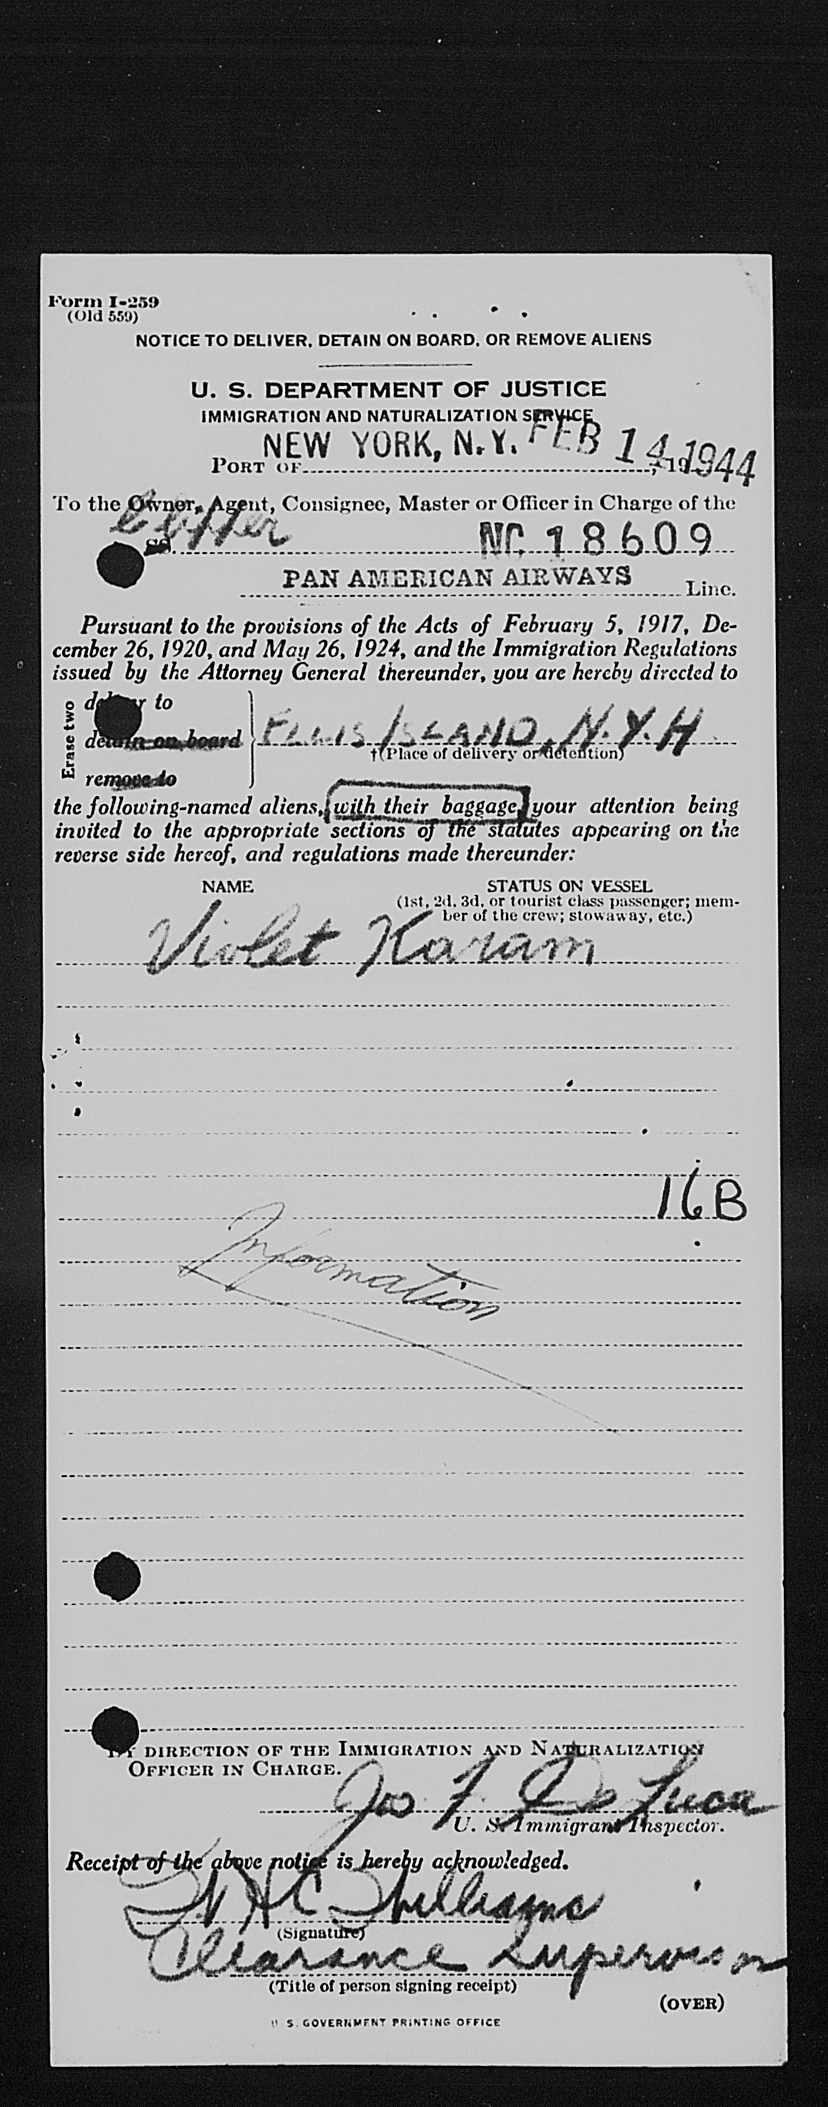 Form I-259
(Old 559)
NOTICE TO DELIVER, DETAIN ON BOARD, OR REMOVE ALIENS
U. S. DEPARTMENT OF JUSTICE
IMMIGRATION AND NATURALIZATION SERVICE
PORT OF NEW YORK, N.Y. FEB 14 1944, 19
To the Owner, Agent, Consignee, Master or Officer in Charge of the
Clipper
SS. NC 18609
PAN AMERICAN AIRWAYS Line.
Pursuant to the provisions of the Acts of February 5, 1917, De-
cember 26, 1920, and May 26, 1924, and the Immigration Regulations
issued by the Attorney General thereunder, you are hereby directed to
Erase two
to
detain on board ELLIS ISLAND, N.Y.H
†(Place of delivery or detention)
remove to
the following-named aliens, with their baggage, your attention being
invited to the appropriate sections of the statutes appearing on the
reverse side hereof, and regulations made thereunder:
NAME STATUS ON VESSEL
(1st, 2d, 3d, or tourist class passenger; mem-
ber of the crew; stowaway, etc.)
Violet Karam
16B
Information
BY DIRECTION OF THE IMMIGRATION AND NATURALIZATION
OFFICER IN CHARGE.
Jos F. De Luca
U. S. Immigrant Inspector.
Receipt of the above notice is hereby acknowledged.
Williams
(Signature)
Clearance Supervisor
(Title of person signing receipt)
(OVER)
U. S. GOVERNMENT PRINTING OFFICE